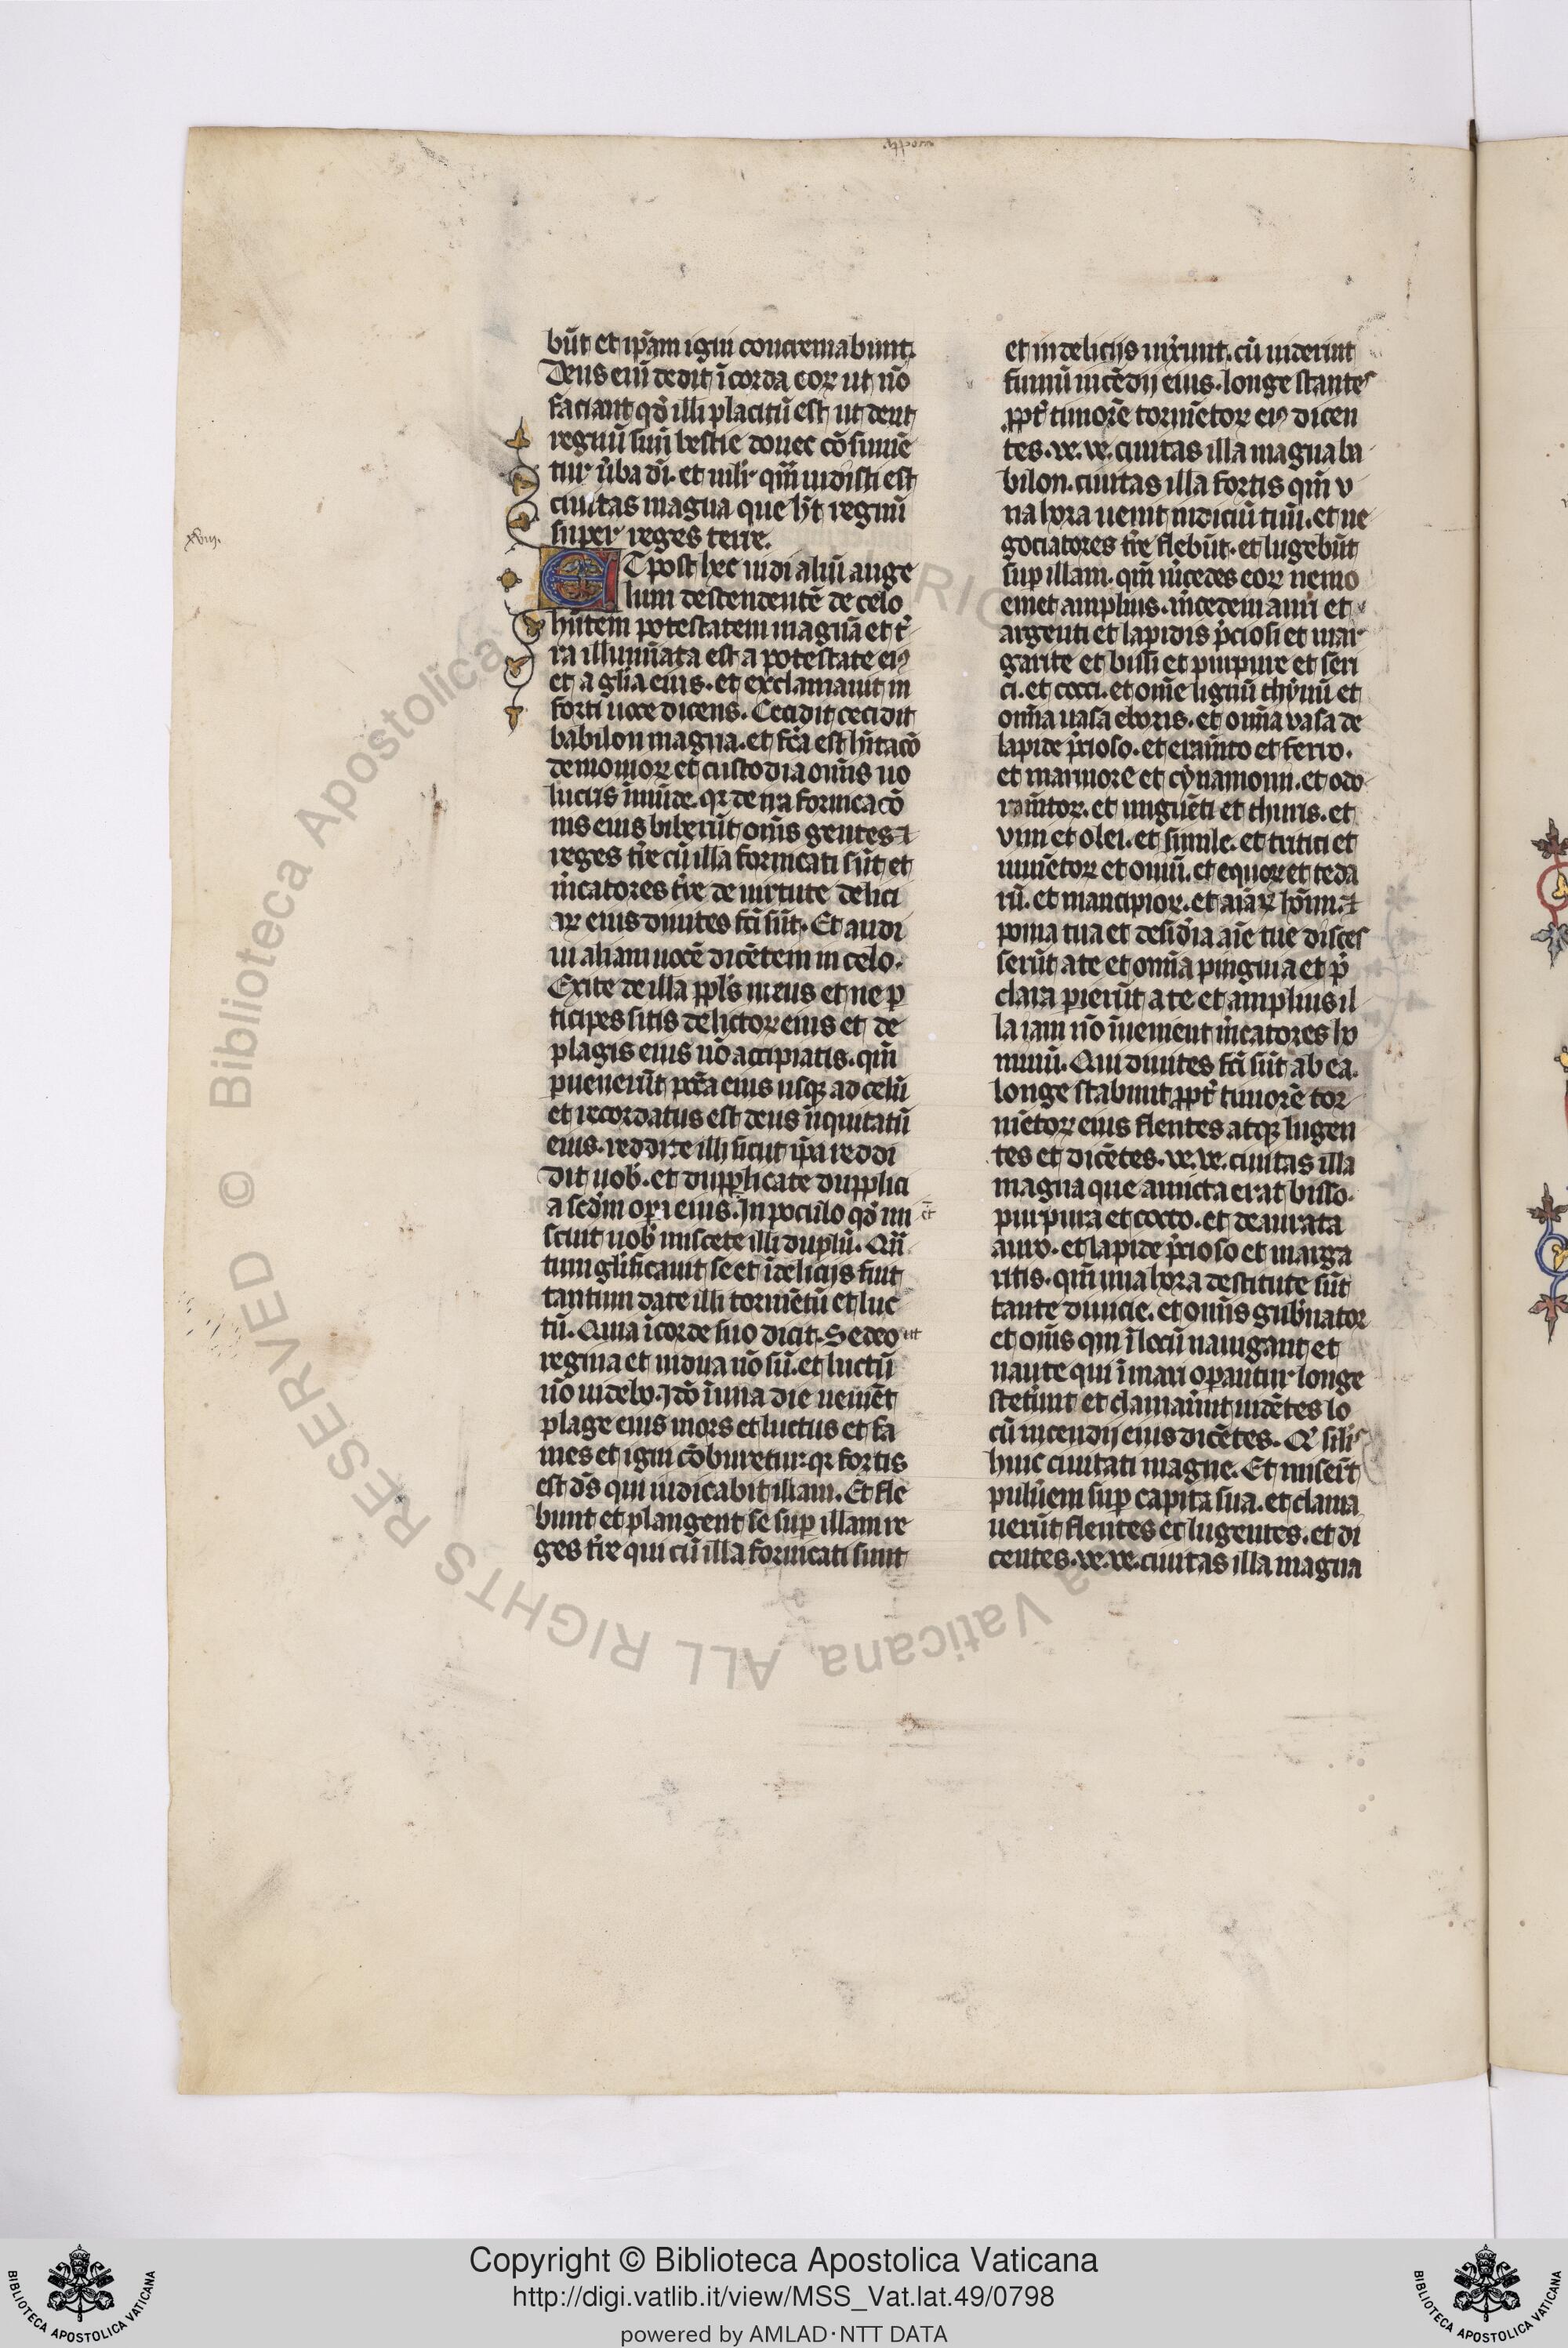 būt et ip̄am igni concremabunt.
Deus enī dedit ī corda eoꝝ ut nō
faciant qđ illi placitū est ut dent
regnū suū bestie donec cōsumē
tur ūba dī. et mlīr qm̄ uidisti est
ciuitas magna que hт̄ regnū
super reges terre.
xviij.
ET post hec uidi aliū ange
lum descendentē de celo
hn̄tem potestatem magnā et t̄r
ra illumīata est a potestate eiꝰ
et a glīa eius. et exclamauit in
forti uoce dicens. Cecidit cecidit
babilon magna. et fc̄a est hītacō
demonioꝝ et custodia om̄is uo
lucris īmūde. qꝛ de ira fornicacō
nis eius biberūt om̄s gentes ⁊
reges t̄re cū illa fornicati sūt et
m̄catores t̄re de uirtute delici
aꝝ eius diuites fc̄i sūt. Et audi
ui aliam uocē dicētem in celo.
Exite de illa pp̄ls meus et ne ꝑ
ticipes sitis delictoꝝ eius et de
plagis eius nō accipiatis. qm̄
ꝑuenerūt pcc̄a eius usqꝫ ad celū
et recordatus est deus īiquitatū
eius. reddite illi sicut ip̄a reddi
dit uob̄. et dupplicate dupplici
a scđm oꝑa eius. In poculo qđ mi et
scuit uob̄ miscete illi duplū. Qn̄
tum gl̄ificauit se et ī delicijs fuit
tantum date illi tormētū et luc
tū. Quia ī corde suo dicit. Sedeo ut
regina et uidua nō sū. et luctū
nō uidebo. Idō ī una die ueniēt
plage eius mors et luctus et fa
mes et igni cōburetur. qꝛ fortis
est dс̄ qui iudicabit illam. Et fle
bunt et plangent se suꝑ illam re
ges t̄re qui cū illa fornicati sunt
et in delicijs uix̄runt. cū uiderint
fumū incēdij eius. longe stantes
ꝓpt̄ timorē tormētoꝝ eiꝰ dicen
tes. ve. ve. ciuitas illa magna ba
bilon. ciuitas illa fortis qm̄ v
na hora uenit iudiciū tuū. et ne
gociatores t̄re flebūt. et lugebūt
suꝑ illam. qm̄ m̄cedes eoꝝ nemo
emet amplius. m̄cedem auri et
argenti et lapidis p̄ciosi et mar
garite et bissi et purpure et seri
ci. et cocci. et om̄e lignū thyinū et
om̄ia uasa eboris. et om̄ia uasa de
lapide p̄cioso. et eramīto et ferro.
et marmore et cynamonū. et odo
ramītoꝝ. et unguēti et thuris. et
vini et olei. et simile. et tritici et
iumētoꝝ et ouiū. et equoꝝ et reda
rū. et mancipioꝝ. et aīaꝝ hōīnū. ⁊
poma tua et desid̄ia aīe tue disces
serūt a te et om̄ia pinguia et p̄
clara ꝑierūt a te et amplius il
la iam nō īuenient m̄catores ho
minū. Qui diuites fc̄i sūt ab ea.
longe stabunt ꝓpt̄ timorē tor
mētoꝝ eius flentes atqꝫ lugen
tes et dicētes. ve. ve. ciuitas illa
magna que amicta erat bisso.
purpura et cocco. et deaurata
auro. et lapide p̄cioso et marga
ritis. qm̄ una hora destitute sūt
tante diuicie. et om̄is gub̄nator
et om̄is qui ī locū nauigant et
naute qui ī mari oꝑantur longe
stet̄unt et clamaūnt uidētes lo
cū incendij eius dicētes. Qͥ silīs
huic ciuitati magne. Et miserūt
pulūem suꝑ capita sua. et clama
uerūt flentes et lugentes. et di
centes. ve. ve. ciuitas illa magna
© Biblioteca Apostolica Vaticana ALL RIGHTS RESERVED
Copyright © Biblioteca Apostolica Vaticana
http://digi.vatlib.it/view/MSS_Vat.lat.49/0798
powered by AMLAD·NTT DATA
BIBLIOTECA APOSTOLICA VATICANA
BIBLIOTECA APOSTOLICA VATICANA